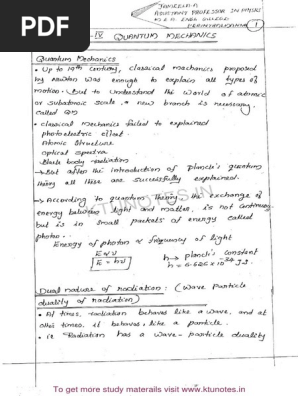 PDF
ASSISTANT PROFESSOR IN PHYSICS
M.E.A ENGG COLLEGE
PERINTHALMANNA
1
- IV QUANTUM MECHANICS
Quantum Mechanics
• Up to 19th century, classical mechanics proposed
by newton was enough to explain all types of
motion. But to understand the world of atomic
or subatomic scale, a new branch is necessary
called QM
• classical mechanics failed to explained
photoelectric effect.
Atomic Structure
Optical spectra
Black body radiation
→ But after the introduction of Planck's quantum
theory all these are successfully explained.
KTUNOTES.IN
→ According to quantum theory the exchange of
energy between light and matter, is not continuous
but is in small packets of energy called
photon.
Energy of photon α frequency of light
E α ν
E = hν
h → planck's constant
h = 6.625 × 10^-34 JS.
Dual nature of radiation : (Wave particle
duality of radiation)
• At times, radiation behaves like a wave, and at
other times, it behaves, like a particle.
• ie Radiation has a wave-particle duality
To get more study materails visit www.ktunotes.in